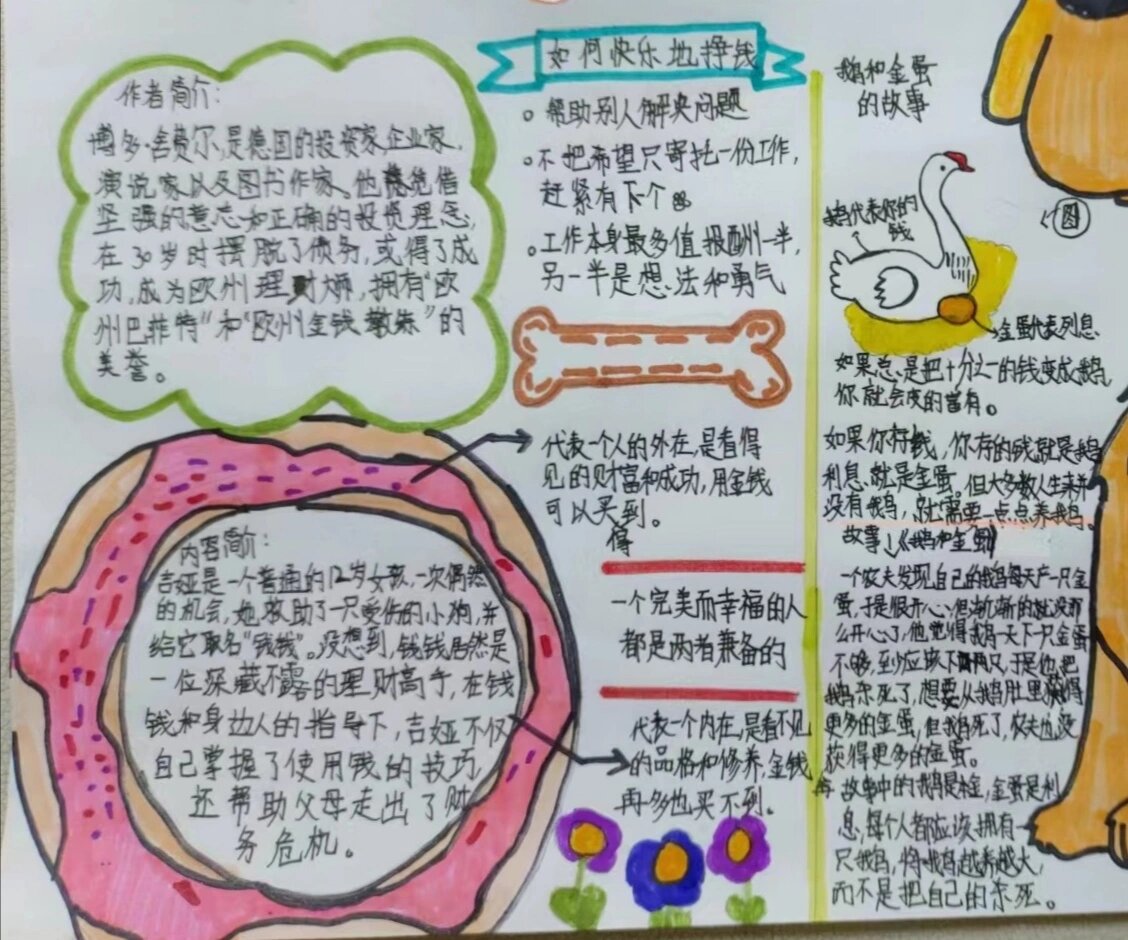 作者简介:
博多·舍费尔,是德国的投资家企业家、
演说家以及图书作家。他凭借
坚强的意志和正确的投资理念,
在30岁时摆脱了债务,或得了成
功,成为欧州理财大师,拥有"欧
州巴菲特"和"欧州金钱教练"的
美誉。
内容简介:
吉娅是一个普通的12岁女孩,一次偶然
的机会,她救助了一只受伤的小狗,并
给它取名"钱钱"。没想到,钱钱居然是
一位深藏不露的理财高手,在钱
钱和身边人的指导下,吉娅不仅
自己掌握了使用钱的技巧,
还帮助父母走出了财
务危机。
如何快乐地挣钱
帮助别人解央问题
不把希望只寄托一份工作,
赶紧有下个
工作本身最多值报酬州一半,
另一半是想法和勇气
代表一个人的外在,是看得
见的财富和成功,用金钱
可以买到。
得
一个完美而幸福的人
都是两者兼备的
代表一个内在,是看不见
的品格和修养,金钱
再多也买不到。
鹅和金蛋
的故事
鹅代表你的
钱
图
金蛋代表利息
如果总是把十分之一的钱变成鹅,
你就会变的富有。
如果你存钱,你存的钱就是鹅
利息就是金蛋。但大多数人生来并
没有鹅,就需要一点点养鹅。
故事《鹅和金蛋》
一个农夫发现自己的鹅每天产一只金
蛋,于是很开心,但渐渐的就没那
么开心了,他觉得鹅一天下一只金蛋
不够,至少应该下两只,于是他把
鹅杀死了,想要从鹅肚里获得
更多的金蛋,但鹅死了,农夫也没
获得更多的金蛋。
故事中的鹅是本金,金蛋是利
息,每个人都应该拥有一
只鹅,将鹅越养越大,
而不是把自己的杀死。